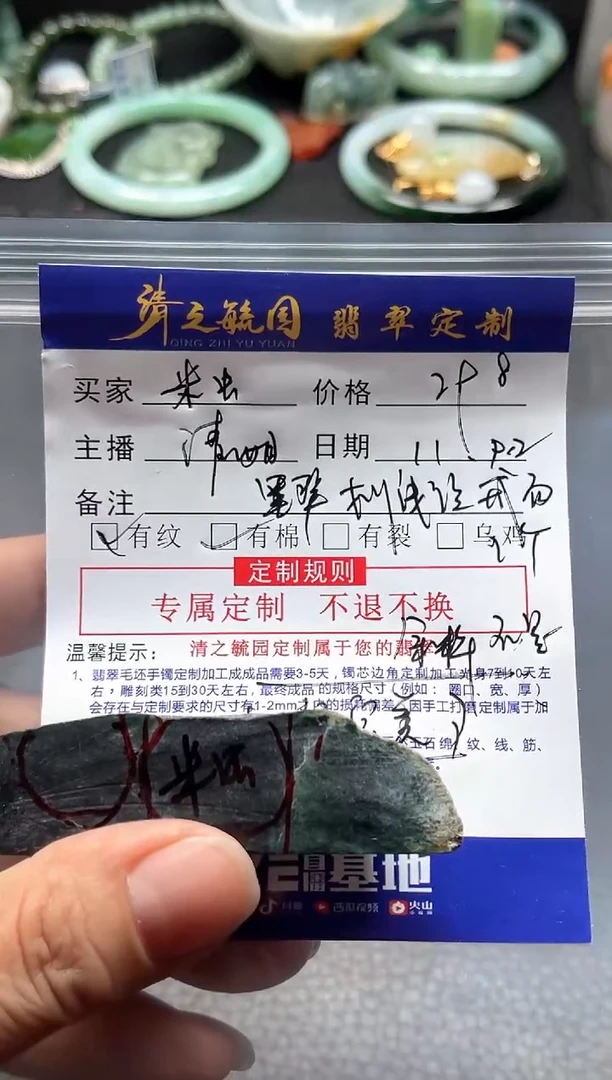 清之毓园 翡翠定制
QING ZHI YU YUAN
买家 柴虫 价格 298
主播 清 日期 11.
备注 墨翠 戒面
有纹 有棉 有裂 乌鸡
2个
定制规则
专属定制 不退不换
温馨提示： 清之毓园定制属于您的翡
1、翡翠毛坯手镯定制加工成成品需要3-5天，镯芯边角定制加工光身7到10天左
右，雕刻类15到30天左右，最终成品的规格尺寸（例如：圈口、宽、厚）
会存在与定制要求的尺寸有1-2mm之内的损耗误差，因手工打磨定制属于加
玉石绵、纹、线、筋、
柴虫
基地
抖音 西瓜视频 火山
小视频